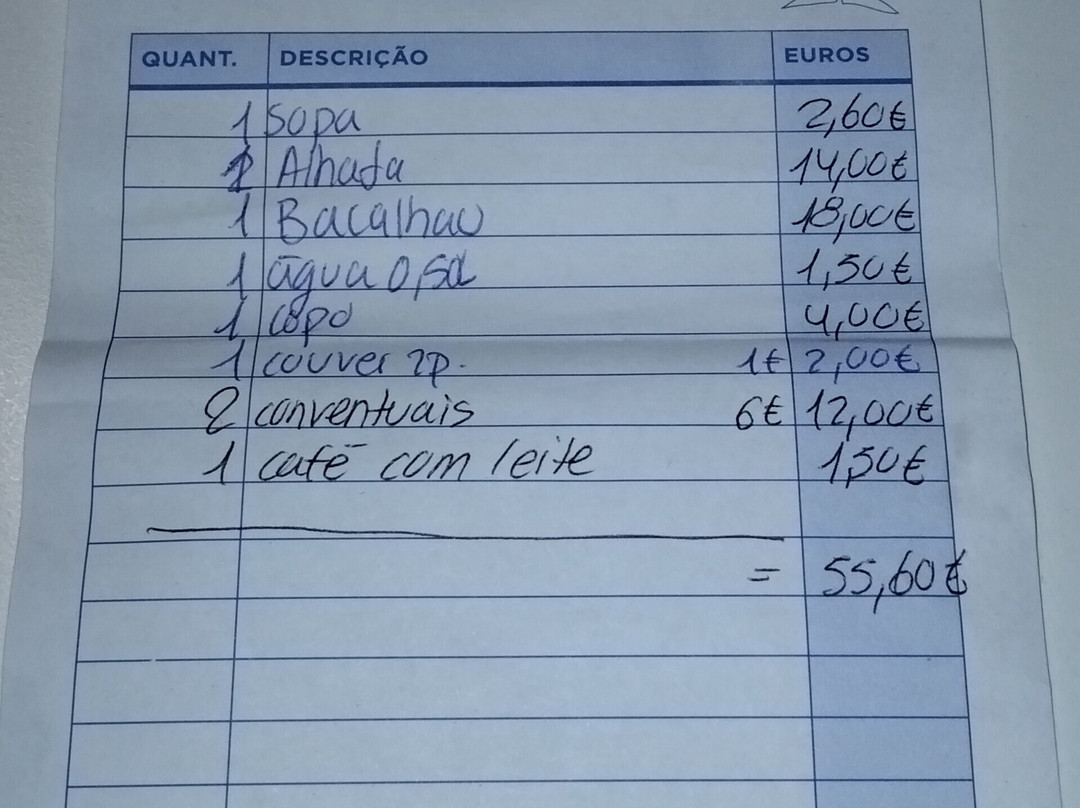 QUANT. DESCRIÇÃO EUROS
1 Sopa 2,60€
1 Alhada 14,00€
1 Bacalhau 18,00€
1 água 0,5d 1,50€
1 copo 4,00€
1 couver 2p. 1€ 2,00€
2 conventuais 6€ 12,00€
1 café com leite 1,50€
= 55,60€